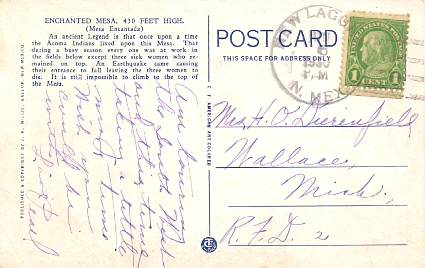 ENCHANTED MESA, 430 FEET HIGH.
(Mesa Encantada)
An ancient Legend is that once upon a time
the Acoma Indians lived upon this Mesa. That
during a busy season every one was at work in
the fields below except three sick women who re-
mained on top. An Earthquake came causing
their entrance to fall leaving the three women to
die. It is still impossible to climb to the top of
the Mesa.
Am touring
the South West
and this time
taking a little
more time
Wish you
could be
with
PUBLISHED & COPYRIGHT BY J. R. WILLIS, GALLUP, NEW MEXICO
C. T. AMERICAN ART COLORED
POST CARD
THIS SPACE FOR ADDRESS ONLY
NEW LAGU
8
P.M
N. MEX
1 CENT 1
Mrs H. O. Duerenfield
Wallace,
Mich.
R.F.D. 2